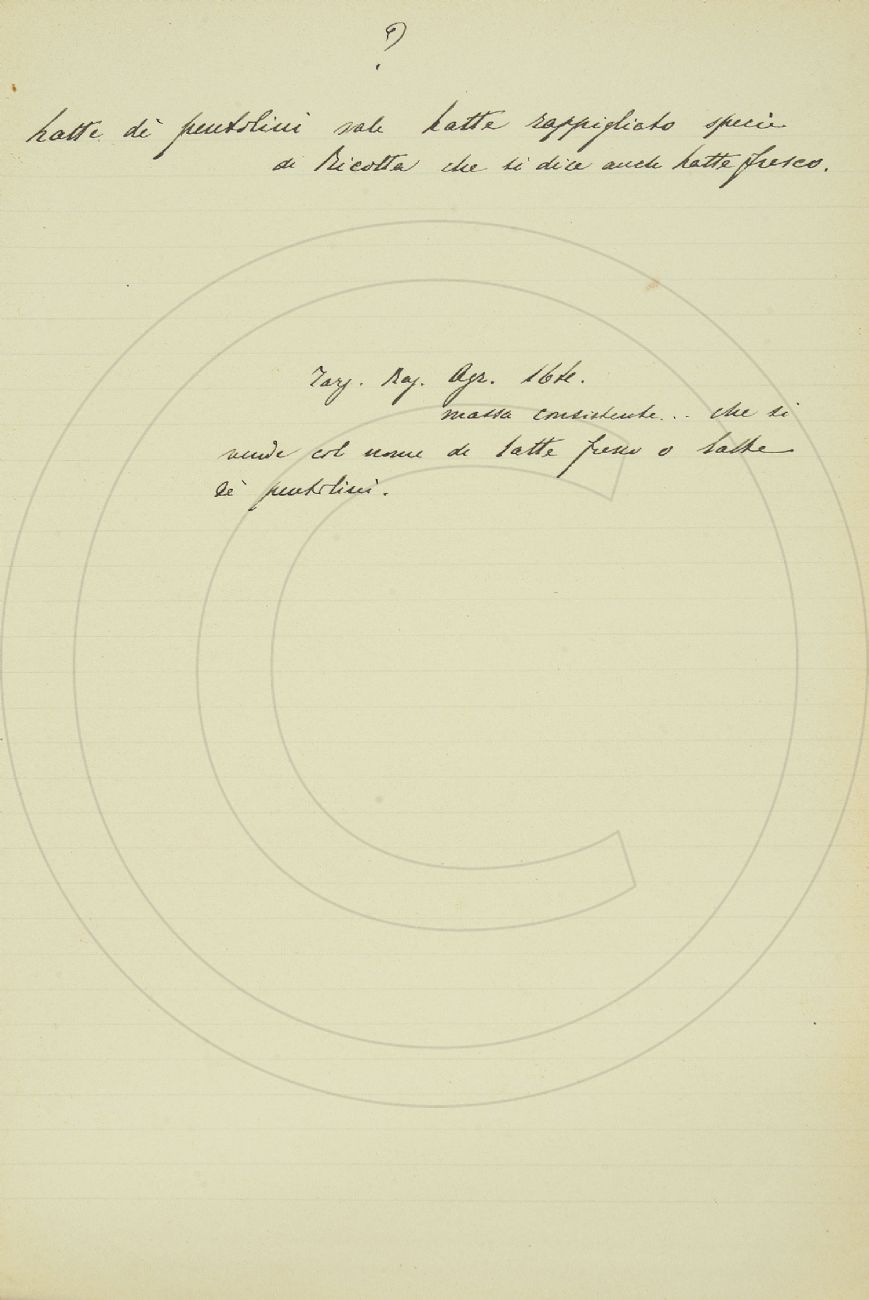 ?
Latte dè pentolini vale Latte rappigliato specie
di Ricotta che si dice anche Latte fresco.
Targ. Rag. Agr. 164.
massa consistente... che si
vende col nome di Latte fresco o Latte
dè pentolini.